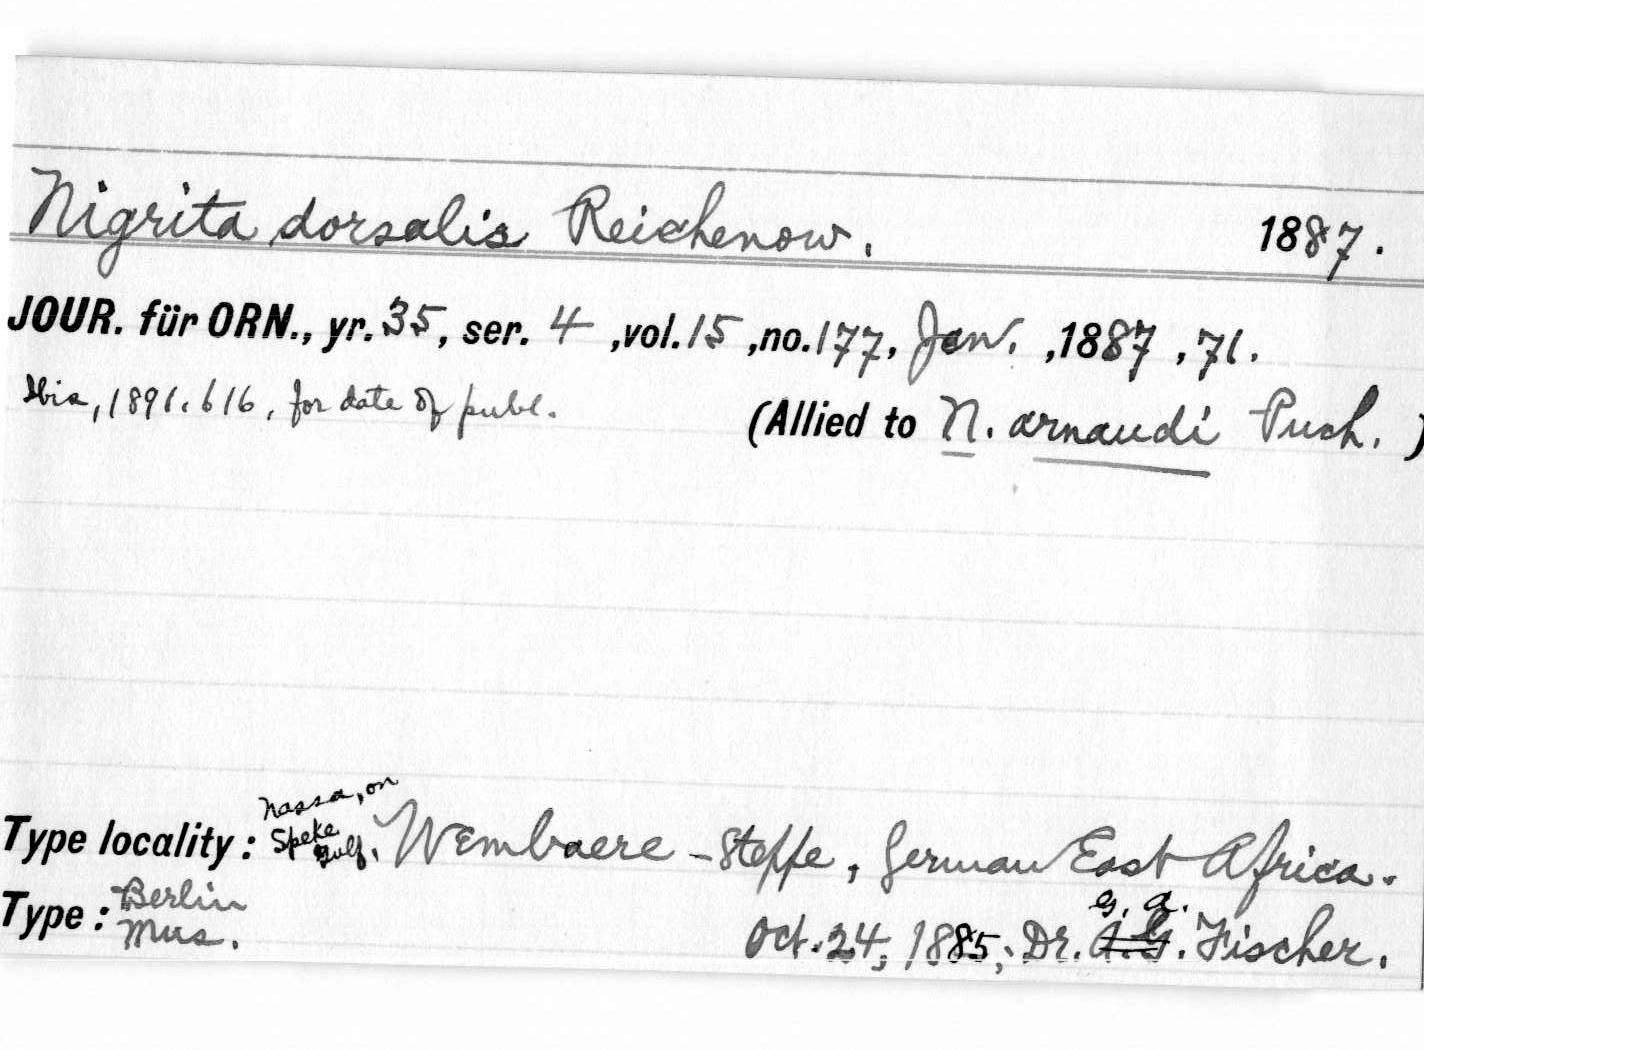 Nigrita dorsalis Reichenow. 1887.
JOUR. für ORN., yr. 35, ser. 4, vol. 15, no. 177, Jan., 1887, 71.
Ibis, 1891, 616, for date of publ.
(Allied to N. arnaudi Puch. )
Nassa, on
Type locality: Speke Gulf, Wembaere-Steppe, German East Africa.
Type: Berlin Mus.
G. A.
Oct. 24, 1885, Dr. A. G. Fischer.